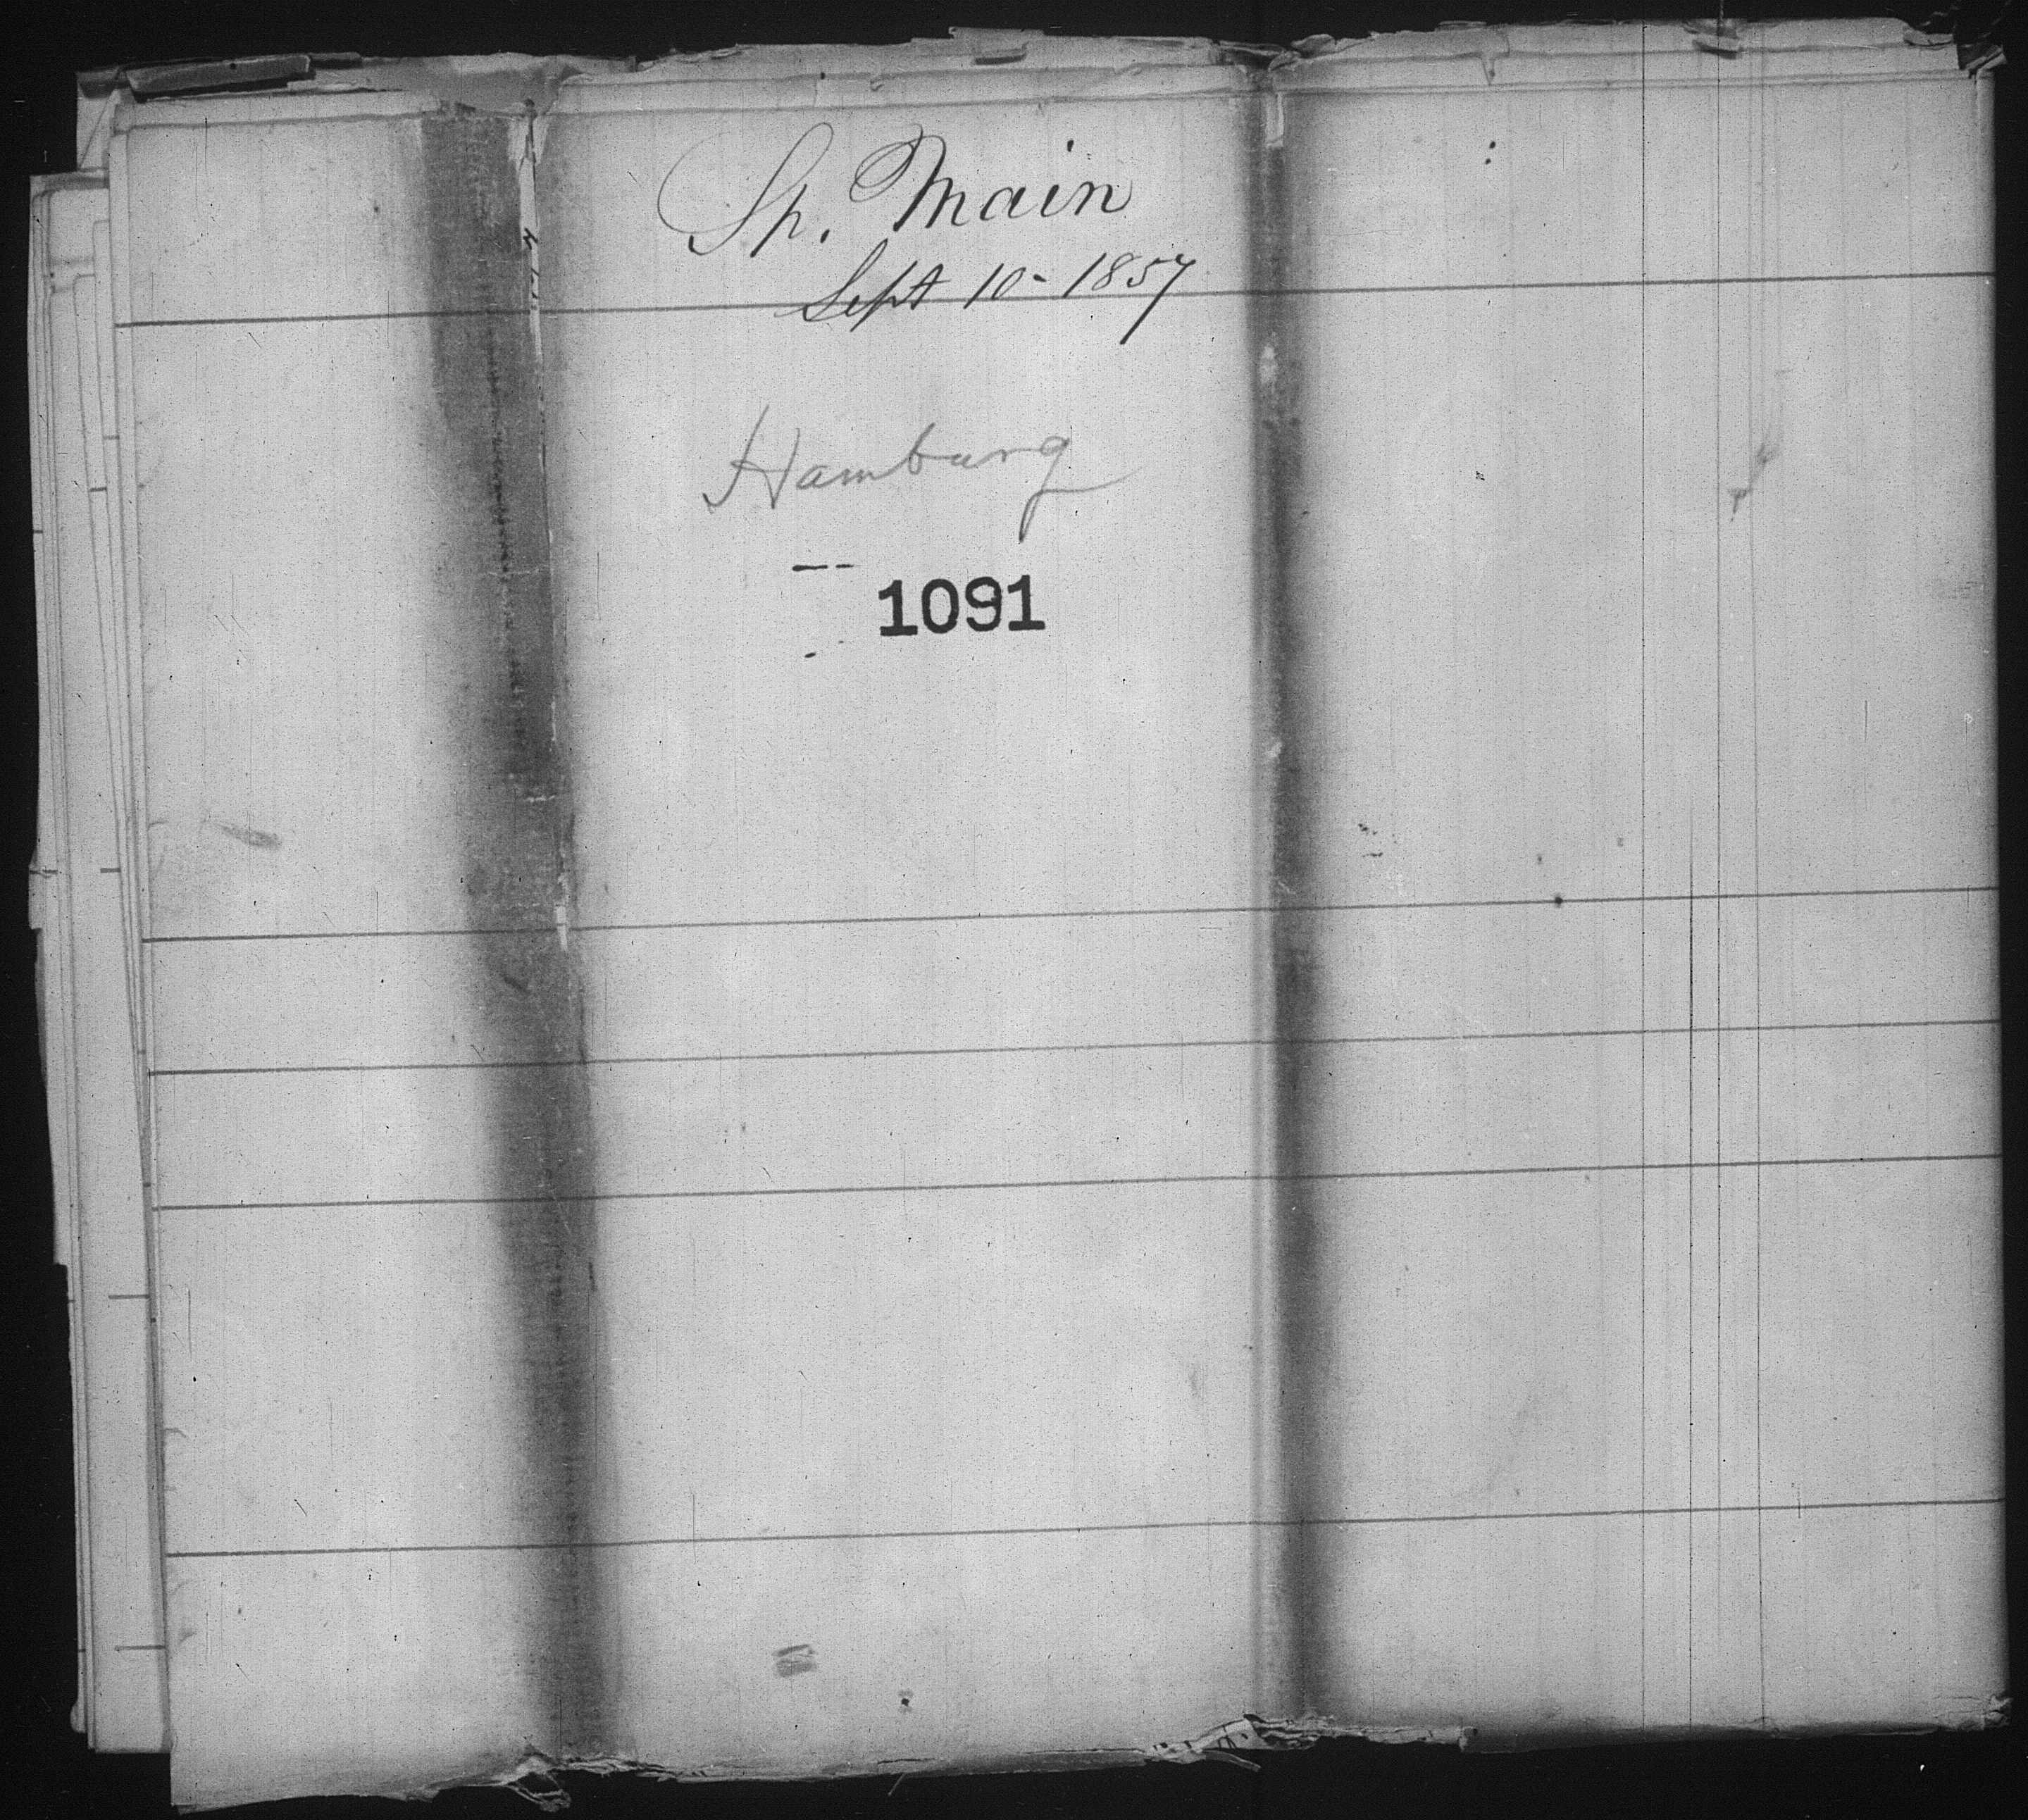 Sh. Main
Sept 10 - 1857
Hamburg
1091